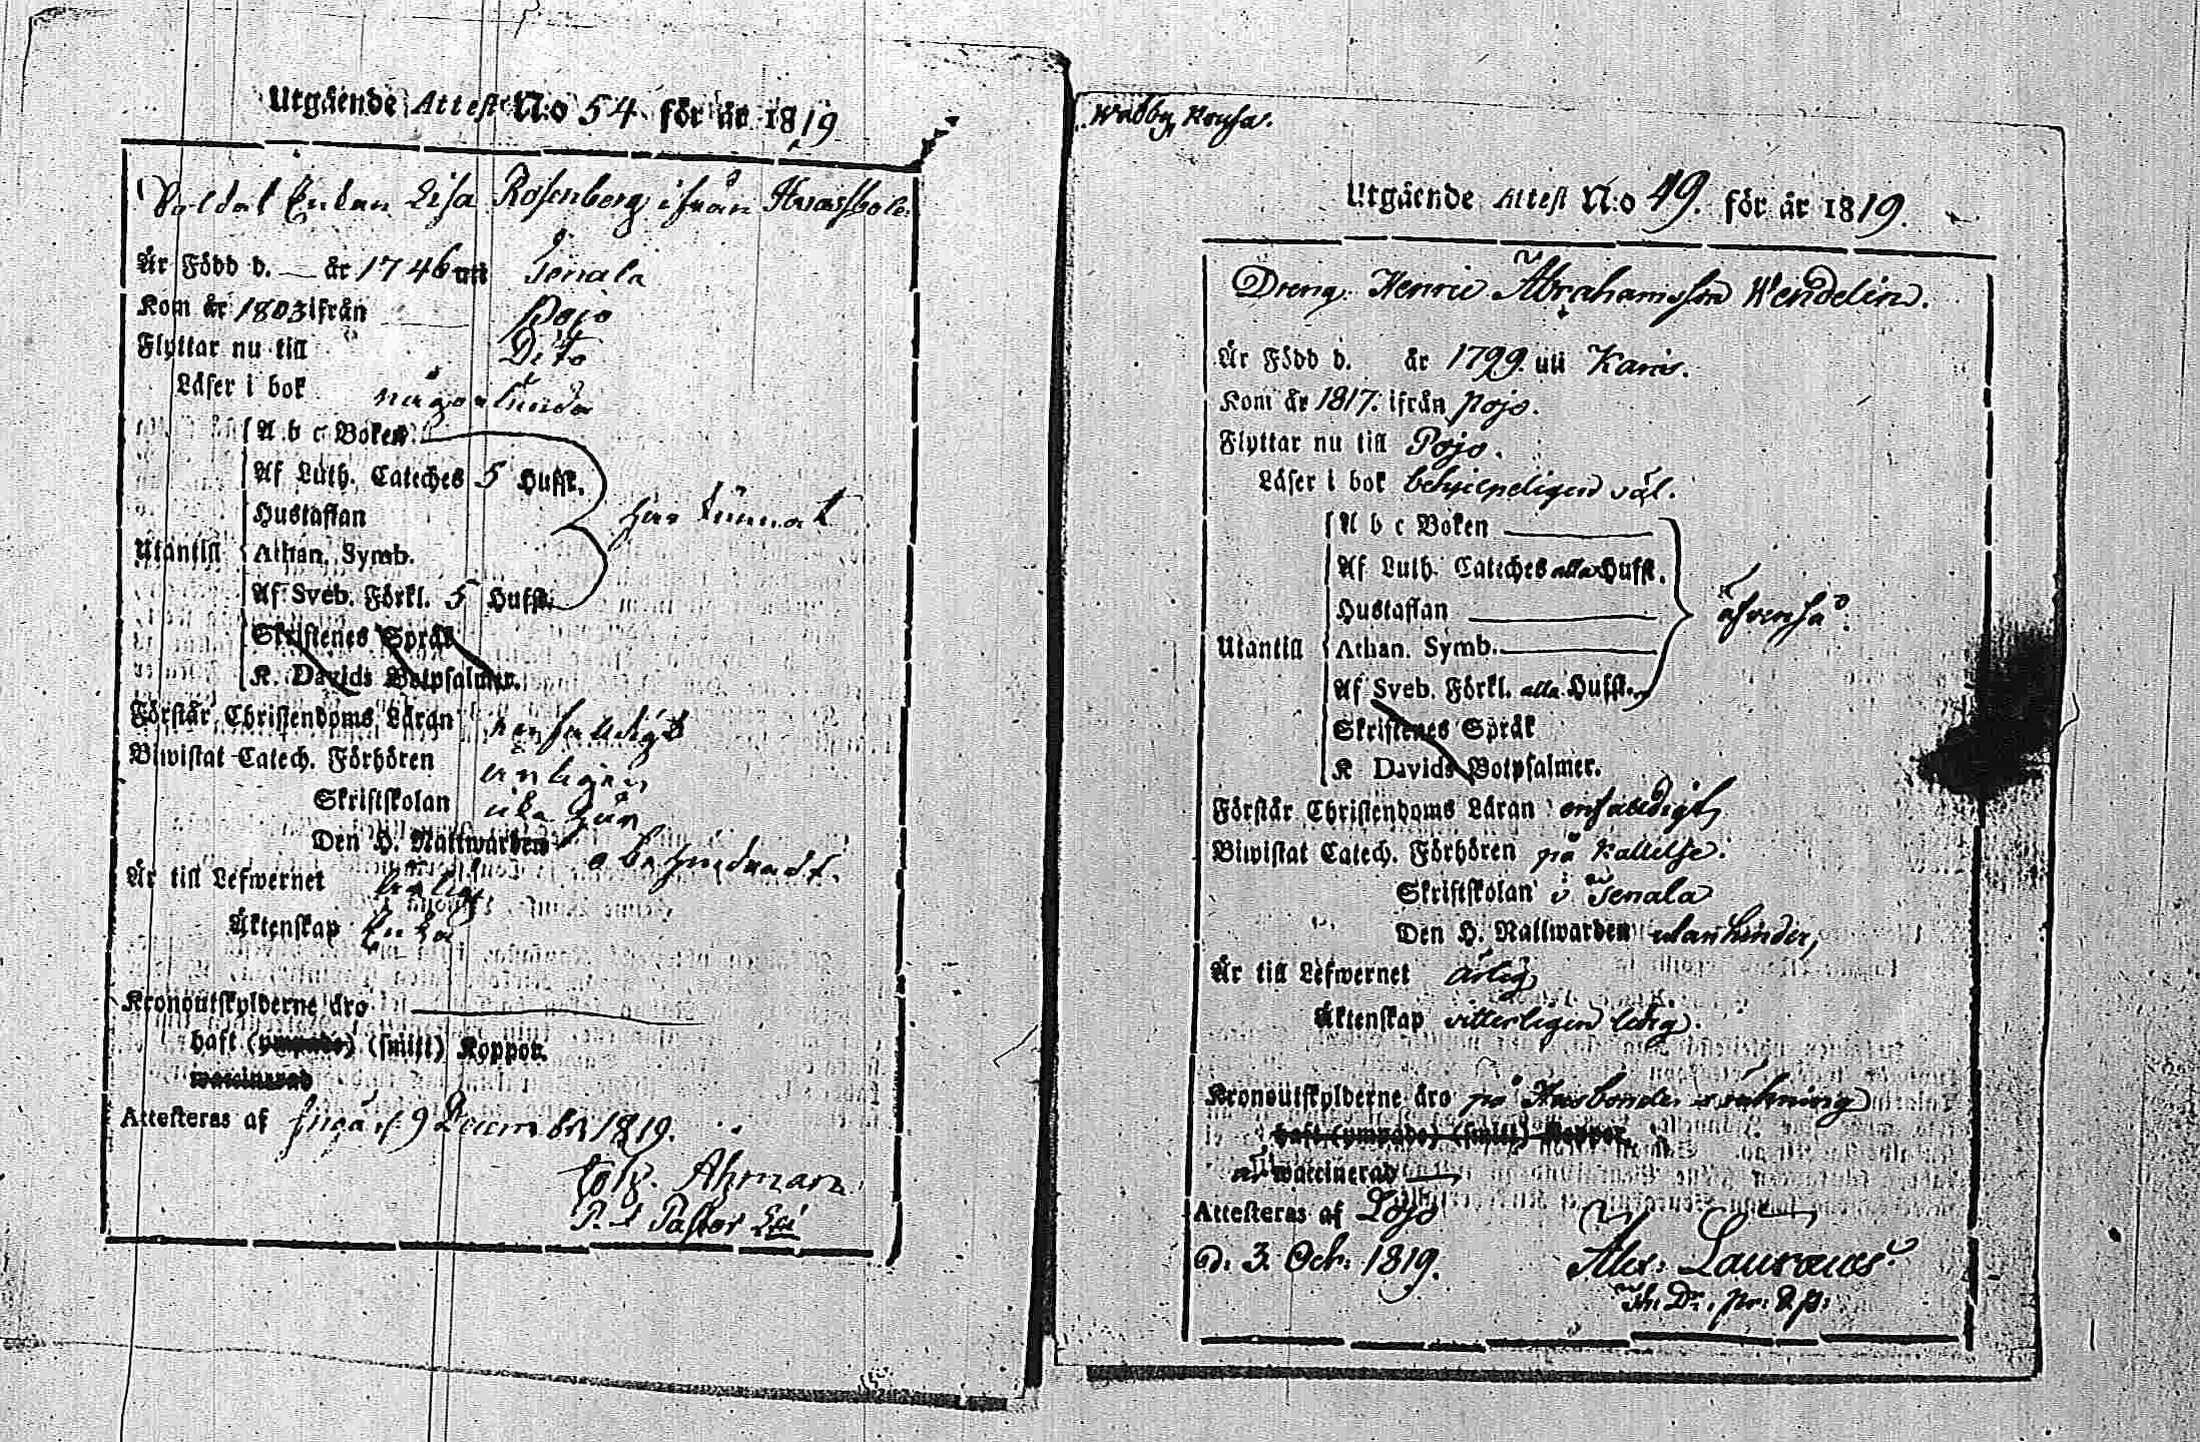 Utgående Attest N:o 54 för år 1819
Soldat Enkan Lisa Rosenberg ifrån
Är Född d. — år 1746 uti Tenala
Kom år 1803 ifrån Pojo
Flyttar nu till Dito
Läser i bok någorlunda
A b c Boken
Af Luth. Cateches 5 Hufst.
Hustaflan har kunnat
Utantill Athan. Symb.
Af Sveb. Förkl. 5 Hufst.
Skriftenes Språk
K. Davids Botpsalmer.
Förstår Christendoms Läran enfaldigt
Biwistat Catech. Förhören
Skriftskolan
Den H. Nattwarden obehindradt.
Är till Lefwernet ärlig
Äktenskap Enka
Kronoutskylderne äro
haft (ympade) (smitt) Koppor.
waccinerad
Attesteras af Ingå d 9 December 1819.
Ahrman
Pastor
Wrabby, Kousa.
Utgående Attest N:o 49. för år 1819.
Dreng Henric Abrahamsson Wendelin.
Är Född d. år 1799. uti Karis.
Kom år 1817. ifrån Pojo.
Flyttar nu till Pojo.
Läser i bok behjelpeligen väl.
A b c Boken
Af Luth. Cateches alla Hufst.
Hustaflan äfvenså.
Utantill Athan. Symb.
Af Sveb. Förkl. alla Hufst.
Skriftenes Språk
K Davids Botpsalmer.
Förstår Christendoms Läran enfaldigt
Biwistat Catech. Förhören på kallelse.
Skriftskolan i Tenala
Den H. Nattwarden utan hinder,
Är till Lefwernet ärlig
Äktenskap vitterligen ledig.
Kronoutskylderne äro på Husbondes räkning
haft (ympade) (smitt) Koppor.
waccinerad
Attesteras af Lojo
d. 3. Octr. 1819. Alex. Lauræus.
Th. Dr.